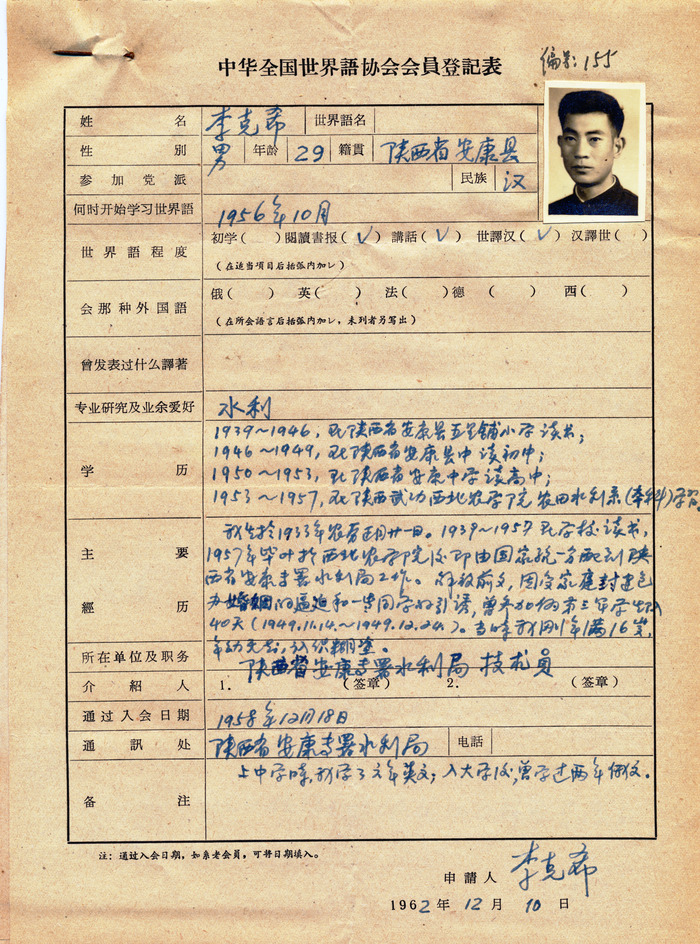 中华全国世界語协会会員登記表
編号: 155
姓名 李克希 世界語名
性別 男 年龄 29 籍貫 陕西省安康县
参加党派 民族 汉
何时开始学习世界語 1956年10月
世界語程度 初学( ) 閱讀書报(✓) 講話(✓) 世譯汉(✓) 汉譯世( )
(在适当項目后括弧内加✓)
会那种外国語 俄( ) 英( ) 法( ) 德( ) 西( )
(在所会語言后括弧内加✓, 未列者另写出)
曾发表过什么譯著
专业研究及业余爱好 水利
学历 1939~1946, 在陕西省安康县五里铺小学读书;
1946~1949, 在陕西省安康县中读初中;
1950~1953, 在陕西省安康中学读高中;
1953~1957, 在陕西武功西北农学院农田水利系(本科)学习.
主要經历 我生於1933年农历正月廿一日。1939~1957在学校读书,
1957年毕业於西北农学院后即由国家统一分配到陕
西省安康专署水利局工作。解放前夕, 因受家庭封建包
办婚姻的逼迫和一些同学的引诱, 曾
40天(1949.11.14.~1949.12.24.)。当時我刚年满16岁,
年幼无知,
所在单位及职务 陕西省安康专署水利局 技术員
介紹人 1. (签章) 2. (签章)
通过入会日期 1958年12月18日
通訊处 陕西省安康专署水利局 电話
备注 上中学時, 我学了六年英文; 入大学后, 曾学过两年俄文。
注: 通过入会日期, 如系老会員, 可将日期填入。
申請人 李克希
1962年12月10日